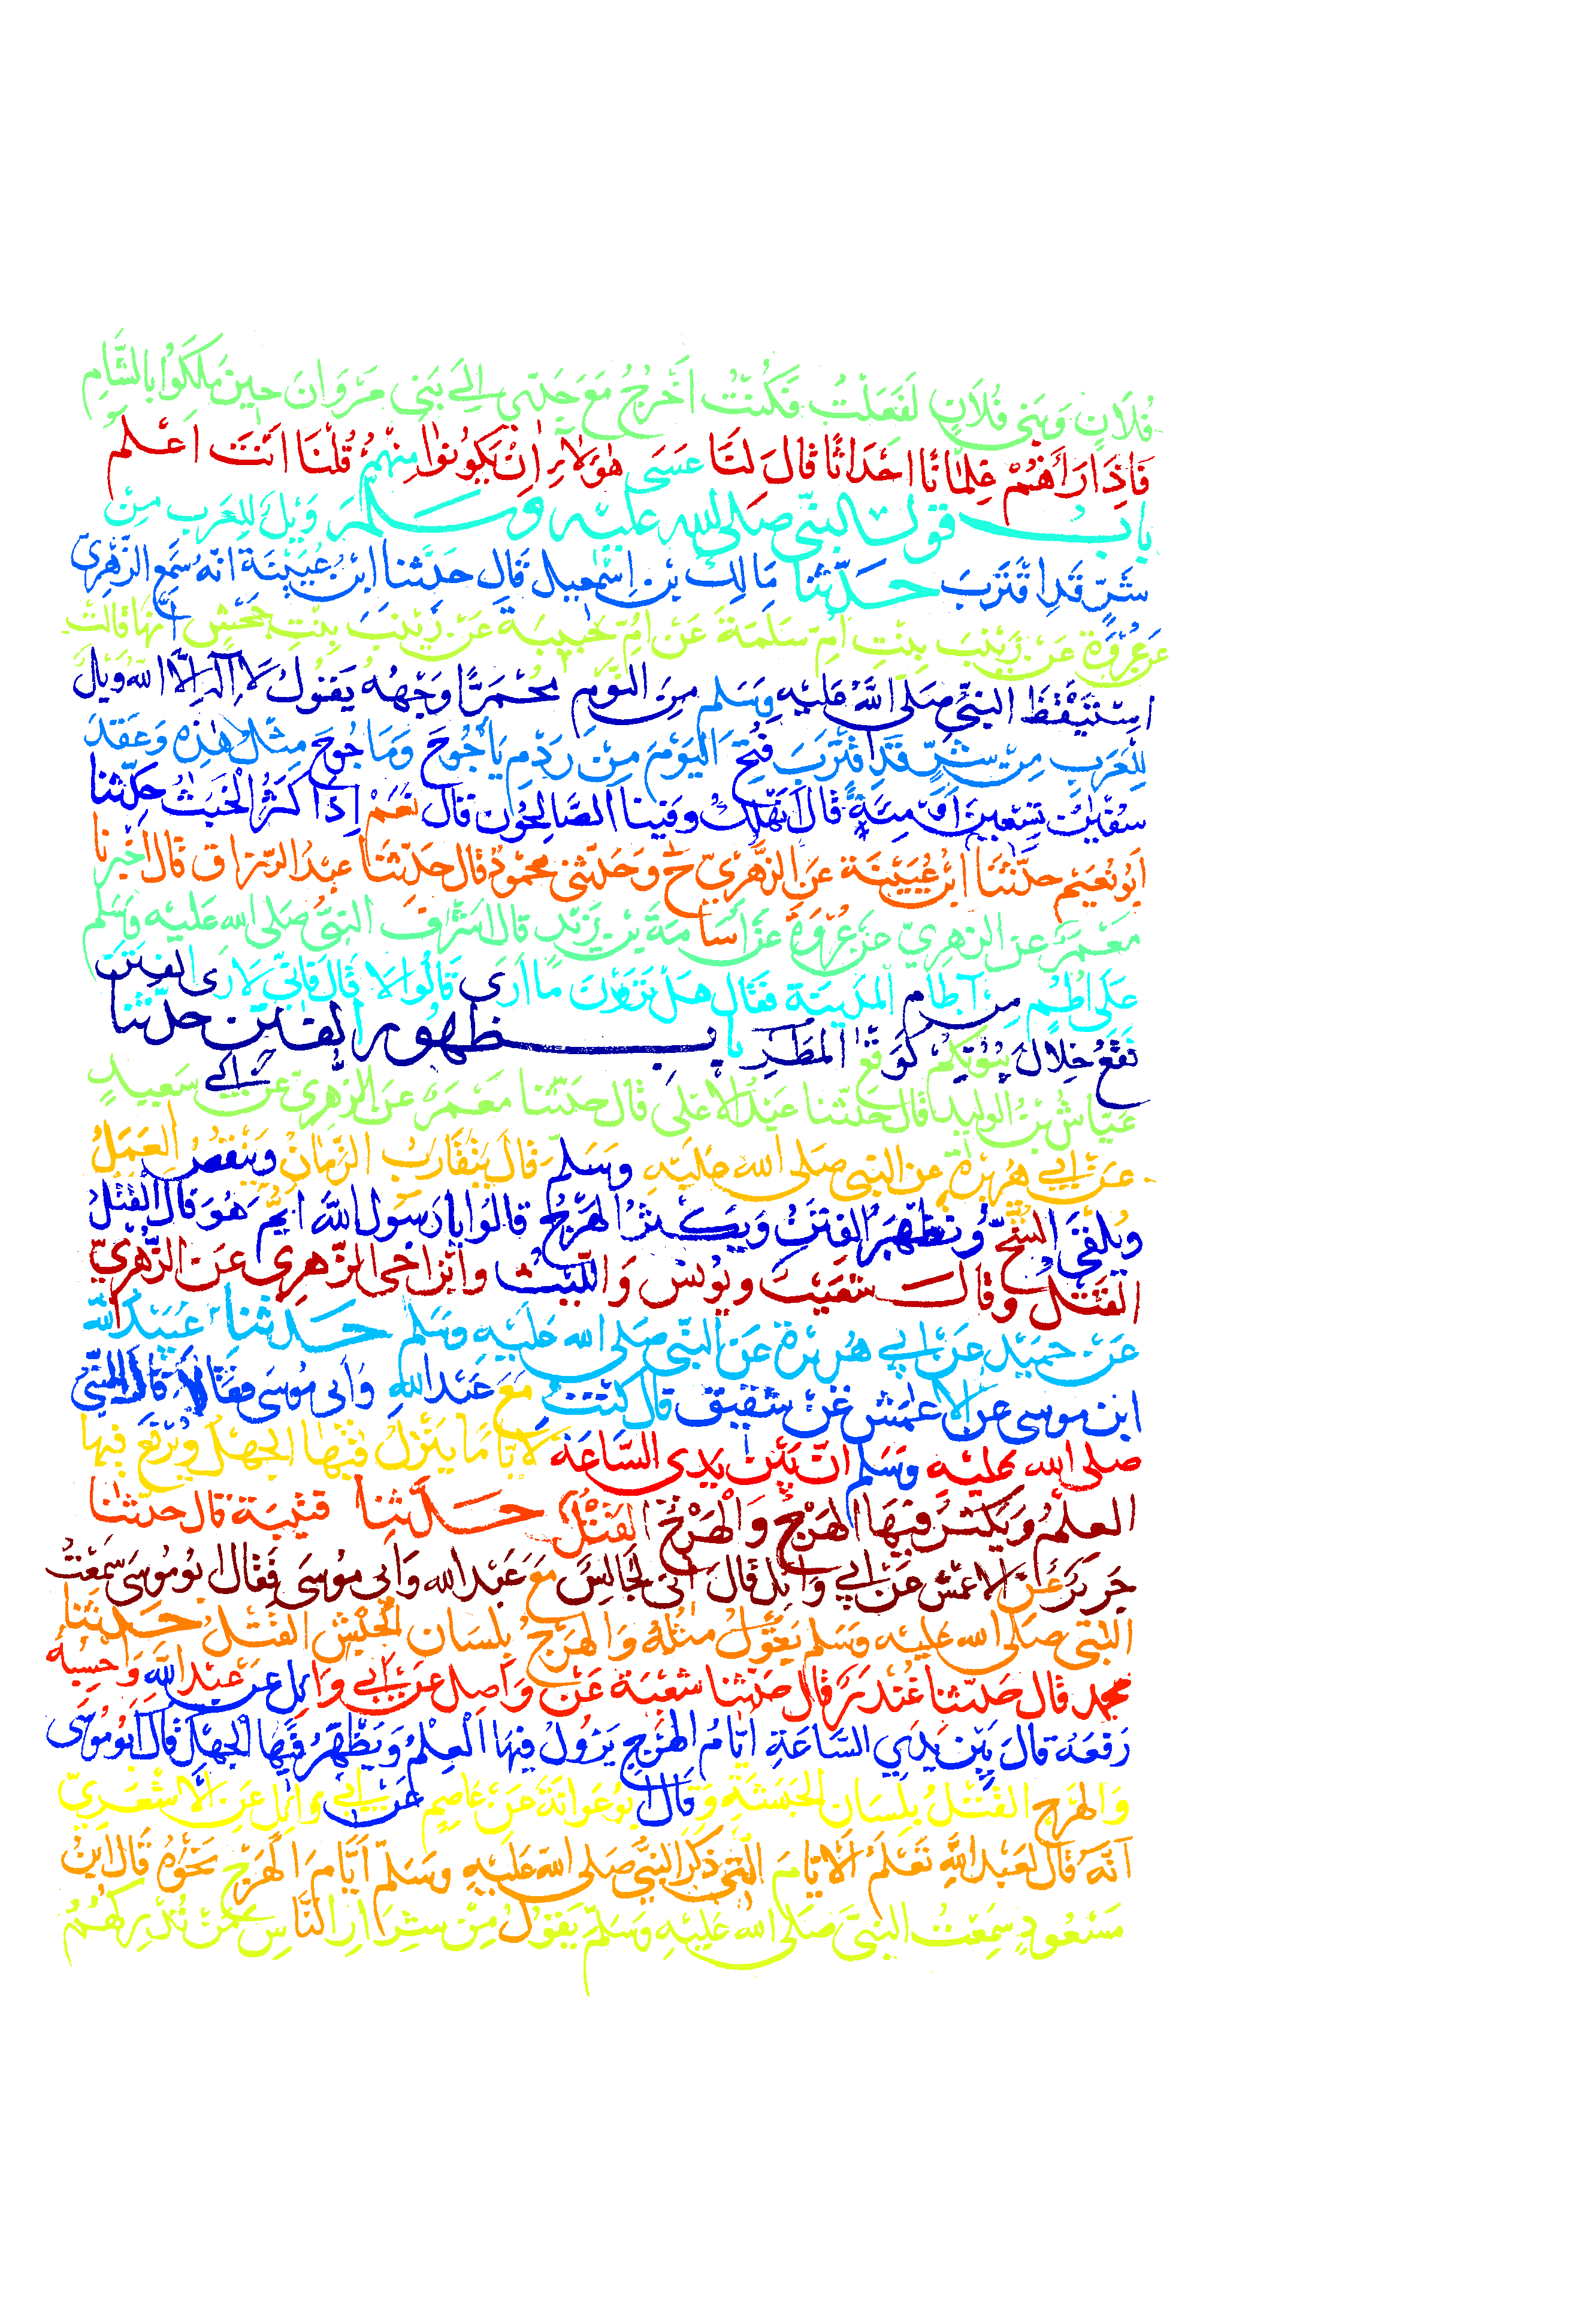 فُلَانٍ وَبَنِي فُلَانٍ لَفَعَلْتُ فَكُنْتُ اَخْرُجُ مَعَ جَدِّي اِلَى بَنِي مَرْوَانَ حِينَ مَلَكُوا بِالشَّامِ
فَاِذَا رَاٰهُمْ غِلْمَانًا اَحْدَاثًا قَالَ لَنَا عَسَى هٰؤُلَاءِ اَنْ يَكُونُوا مِنْهُمْ قُلْنَا اَنْتَ اَعْلَمُ
باب قول النبي صلى الله عليه وسلم وَيْلٌ لِلْعَرَبِ مِنْ
شَرٍّ قَدِ اقْتَرَبَ حَدَّثَنَا مَالِكُ بْنُ اِسْمٰعِيلَ قَالَ حَدَّثَنَا ابْنُ عُيَيْنَةَ اَنَّهُ سَمِعَ الزُّهْرِيَّ
عَنْ عُرْوَةَ عَنْ زَيْنَبَ بِنْتِ اُمِّ سَلَمَةَ عَنْ اُمِّ حَبِيبَةَ عَنْ زَيْنَبَ بِنْتِ جَحْشٍ اَنَّهَا قَالَتْ
اِسْتَيْقَظَ النَّبِيُّ صَلَّى اللهُ عَلَيْهِ وَسَلَّم مِنَ النَّوْمِ مُحْمَرًّا وَجْهُهُ يَقُولُ لَا اِلٰهَ اِلَّا اللهُ وَيْلٌ
لِلْعَرَبِ مِنْ شَرٍّ قَدِ اقْتَرَبَ فُتِحَ الْيَوْمَ مِنْ رَدْمِ يَاْجُوجَ وَمَاجُوجَ مِثْلُ هٰذِهِ وَعَقَدَ
سُفْيٰنُ تِسْعِينَ اَوْ مِئَةً قَالَ اَنَهْلِكُ وَفِينَا الصَّالِحُونَ قَالَ نَعَمْ اِذَا كَثُرَ الْخَبَثُ حَدَّثَنَا
اَبُو نُعَيْمٍ حَدَّثَنَا ابْنُ عُيَيْنَةَ عَنِ الزُّهْرِيِّ ح وَحَدَّثَنِي مَحْمُودٌ قَالَ حَدَّثَنَا عَبْدُ الرَّزَّاقِ قَالَ اَخْبَرَنَا
مَعْمَرٌ عَنِ الزُّهْرِيِّ عَنْ عُرْوَةَ عَنْ اُسَامَةَ بْنِ زَيْدٍ قَالَ اَشْرَفَ النَّبِيُّ صَلَّى الله عَلَيْهِ وَسَلَّم
عَلَى اُطُمٍ مِنْ آطَامِ الْمَدِينَةِ فَقَالَ هَلْ تَرَوْنَ مَا اَرَى قَالُوا لَا قَالَ فَاِنِّي لَاَرَى الْفِتَنَ
تَقَعُ خِلَالَ بُيُوتِكُمْ كَوَقْعِ الْمَطَرِ باب ظهور الفتن حَدَّثَنَا
عَيَّاشُ بْنُ الْوَلِيدِ قَالَ حَدَّثَنَا عَبْدُ الْاَعْلَى قَالَ حَدَّثَنَا مَعْمَرٌ عَنِ الزُّهْرِيِّ عَنْ سَعِيدٍ
عَنْ اَبِي هُرَيْرَةَ عَنِ النَّبِيِّ صَلَّى الله عَلَيْهِ وَسَلَّمَ قَالَ يَتَقَارَبُ الزَّمَانُ وَيَنْقُصُ الْعَمَلُ
وَيُلْقَى الشُّحُّ وَتَظْهَرُ الْفِتَنُ وَيَكْثُرُ الْهَرْجُ قَالُوا يَا رَسُولَ اللهِ اَيُّمَ هُوَ قَالَ الْقَتْلُ
الْقَتْلُ وَقَالَ شُعَيْبٌ وَيُونُسُ وَاللَّيْثُ وَابْنُ اَخِي الزُّهْرِيِّ عَنِ الزُّهْرِيِّ
عَنْ حُمَيْدٍ عَنْ اَبِي هُرَيْرَةَ عَنِ النَّبِيِّ صَلَّى الله عَلَيْهِ وَسَلَّم حَدَّثَنَا عُبَيْدُ اللهِ
ابن موسى عن الاعمش عَنْ شَقِيقٍ قَالَ كُنْتُ مَعَ عَبْدِ اللهِ وَاَبِي مُوسَى فَقَالَا قَالَ النَّبِيُّ
صلى الله عليه وسلم اِنَّ بَيْنَ يَدَيِ السَّاعَةِ لَاَيَّامًا يَنْزِلُ فِيْهَا الْجَهْلُ وَيُرْفَعُ فِيهَا
الْعِلْمُ وَيَكْثُرُ فِيهَا الْهَرْجُ وَالْهَرْجُ الْقَتْلُ حَدَّثَنَا قتيبة قال حدثنا
جَرِيرٌ عَنِ الْاَعْمَشِ عَنْ اَبِي وَائِلٍ قَالَ اِنِّي لَجَالِسٌ مَعَ عَبْدِ الله وَاَبِي مُوسَى فَقَالَ اَبُو مُوسَى سَمِعْتُ
النَّبِيَّ صَلَّى الله عليه وَسَلَّم يَقُولُ مِثْلَهُ وَالْهَرْجُ بِلِسَانِ الْحَبَشِ الْقَتْلُ حَدَّثَنَا
مُحَمَّد قَالَ حَدَّثَنَا غُنْدَرٌ قَالَ حَدَّثَنَا شُعْبَةُ عَنْ وَاصِلٍ عَنْ اَبِي وَائِلٍ عَنْ عَبْدِ اللهِ وَاَحْسِبُهُ
رَفَعَهُ قَالَ بَيْنَ يَدَيِ السَّاعَةِ اَيَّامُ الْهَرْجِ يَزُولُ فِيهَا الْعِلْمُ وَيَظْهَرُ فِيهَا الْجَهْلُ قَالَ اَبُو مُوسَى
وَالْهَرْجُ الْقَتْلُ بِلِسَانِ الْحَبَشَةِ وَقَالَ اَبُو عَوَانَةَ عَنْ عَاصِمٍ عَنْ اَبِي وَائِلٍ عَنِ الْاَشْعَرِيِّ
اَنَّهُ قَالَ لِعَبْدِ اللهِ تَعْلَمُ الْاَيَّامَ الَّتِي ذَكَرَ النَّبِيُّ صَلَّى الله عَلَيْهِ وَسَلَّمَ اَيَّامَ الْهَرْجِ نَحْوَهُ قَالَ ابْنُ
مَسْعُودٍ سَمِعْتُ النَّبِيَّ صَلَّى اللهُ عَلَيْهِ وَسَلَّمَ يَقُولُ مِنْ شِرَارِ النَّاسِ مَنْ تُدْرِكُهُمُ